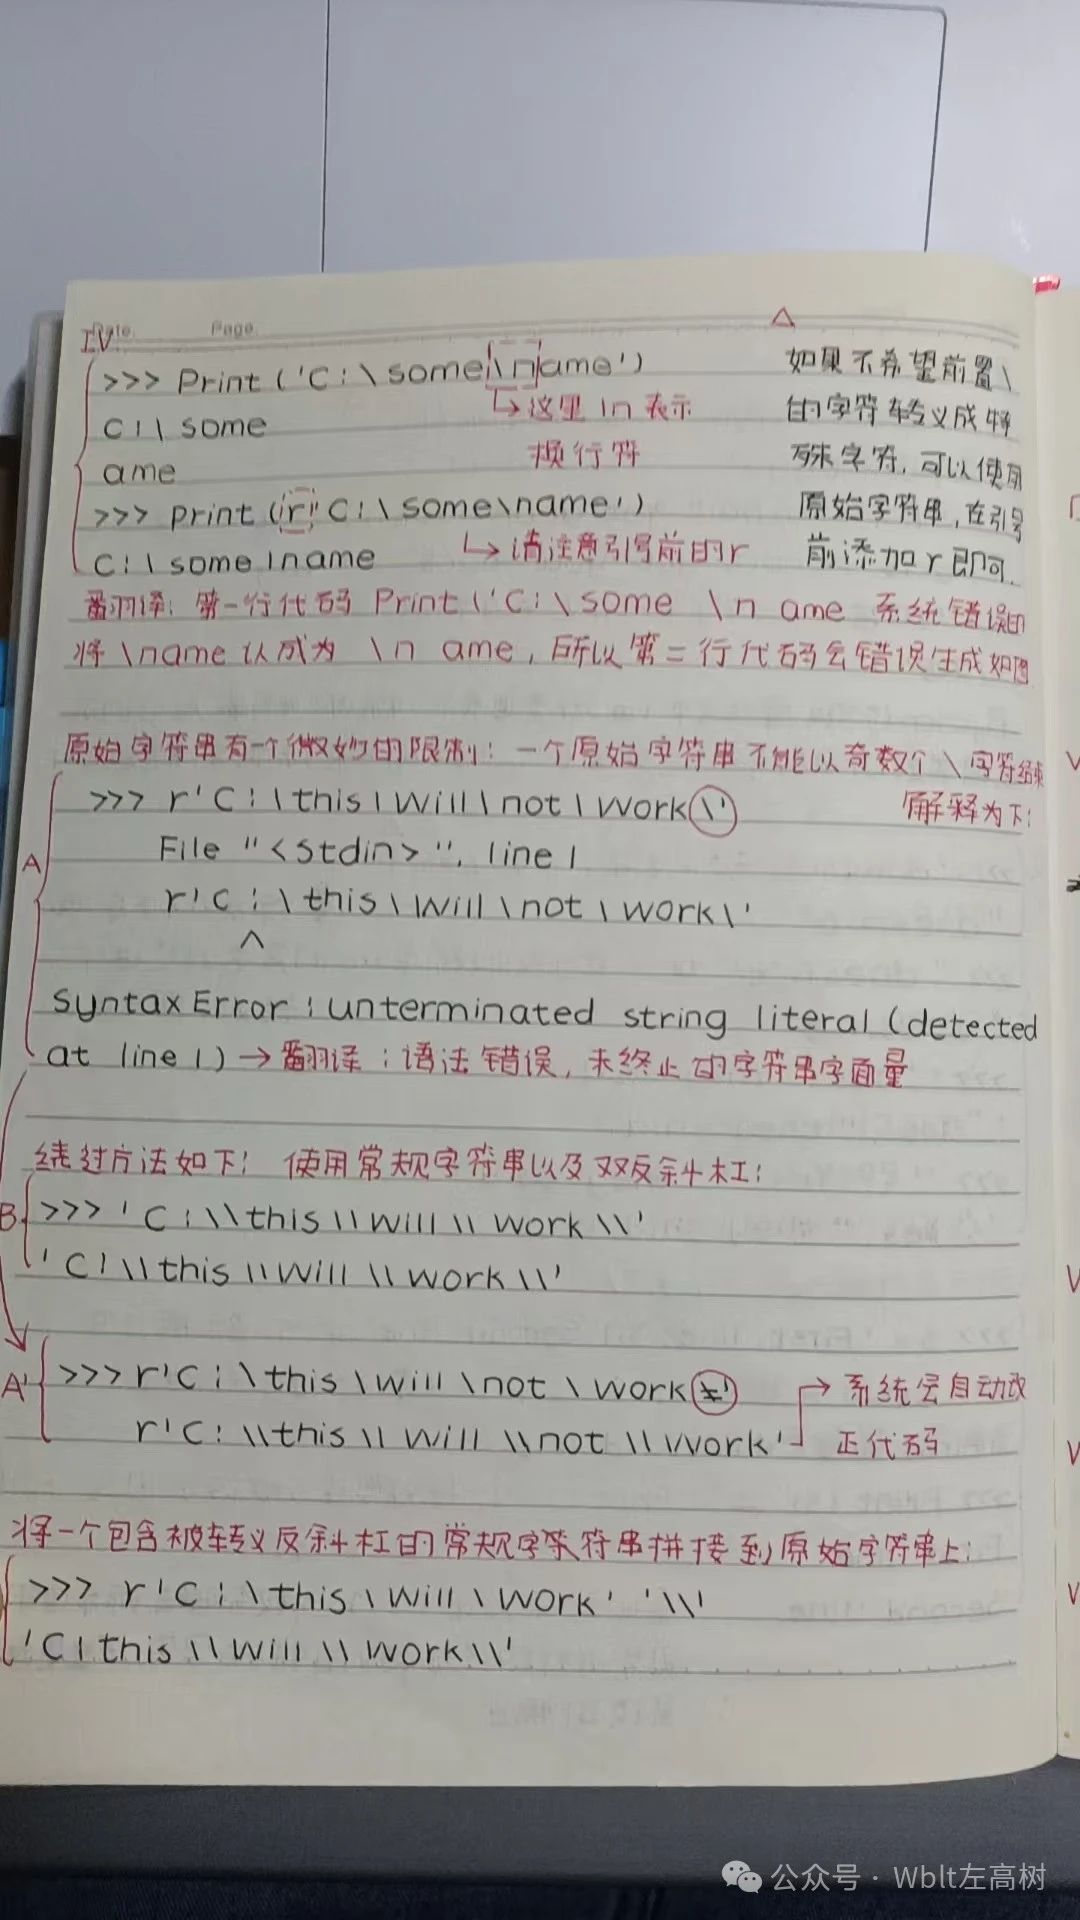 Date. Page.
IV.
△
>>> Print ('C:\some\name') 如果不希望前置\
↳这里\n表示 的字符转义成特
C:\some
换行符 殊字符,可以使用
ame
>>> print (r'C:\some\name') 原始字符串,在引号
C:\some\name ↳请注意引号前的r 前添加r即可.
翻译:第一行代码 Print ('C:\some \n ame 系统错误的
将\name认成为 \n ame,所以第二行代码会错误生成如图
原始字符串有一个微妙的限制:一个原始字符串不能以奇数个\字符结束
>>> r'C:\this\will\not\work\' 解释为下:
A
File "<stdin>", line 1
r'C:\this\will\not\work\'
^
syntaxError:unterminated string literal (detected
at line 1) →翻译:语法错误,未终止的字符串字面量
绕过方法如下: 使用常规字符串以及双反斜杠:
B >>> 'C:\\this\\will\\work\\'
'C:\\this\\will\\work\\'
A' >>> r'C:\this\will\not\work' →系统层自动改
r'C:\\this\\will\\not\\work' 正代码
将一个包含被转义反斜杠的常规字符串拼接到原始字符串上:
>>> r'C:\this\will\work' '\\'
'C\this\\will\\work\\'
公众号·Wblt左高树